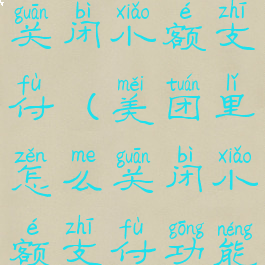 guān bì xiǎo é zhī
关闭小额支
fù měi tuán lǐ
付(美团里
zěn me guān bì xiǎo
怎么关闭小
é zhī fù gōng néng
额支付功能